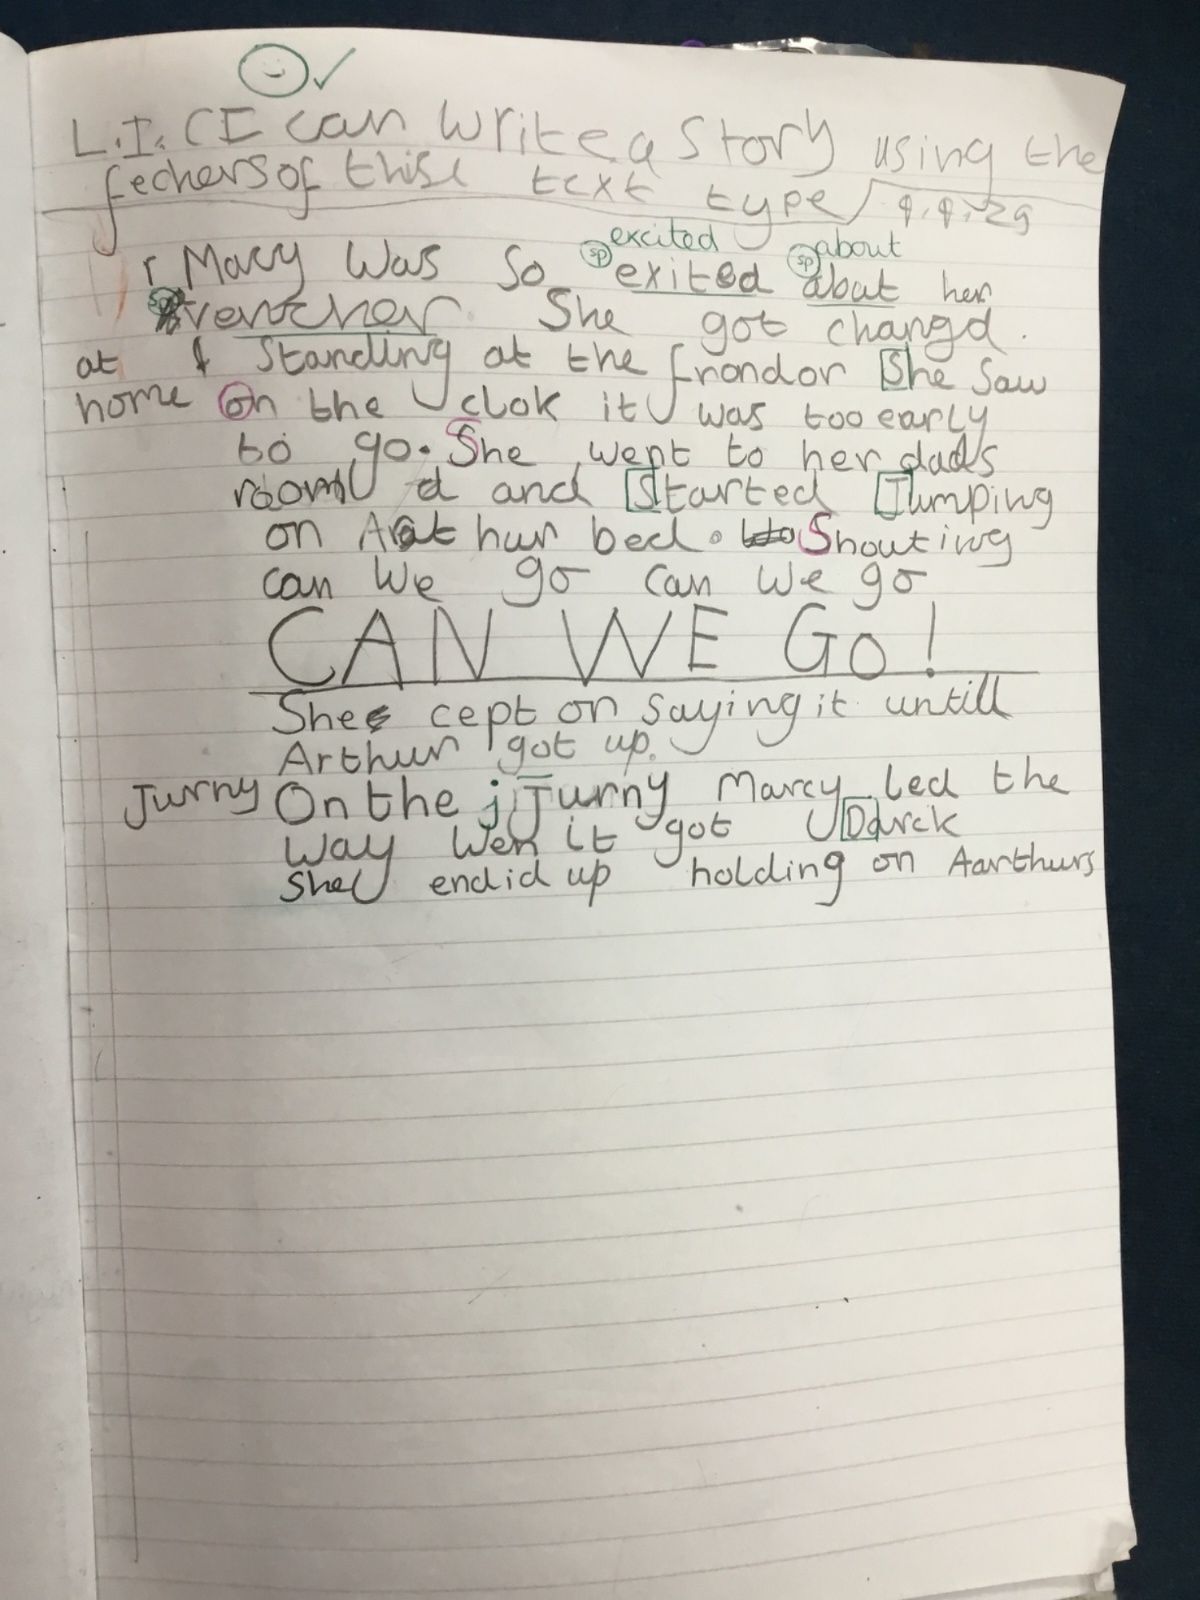 L.I. CI can write a story using the
fechers of thise text type 9.9.29
excited about
r Macy Was So sp exited sp abaut her
sp venther. She got changd.
at Standing at the frondor She Saw
home On the clok it was too early
to go. She went to her dads
room d and Started Jumping
on Arthur bed. Shouting
can We go can We go
CAN WE Go!
She cept on saying it untill
Arthur got up.
Jurny On the j Jurny Marcy led the
Way Wen it got Darck
She endid up holding on Aarthurs